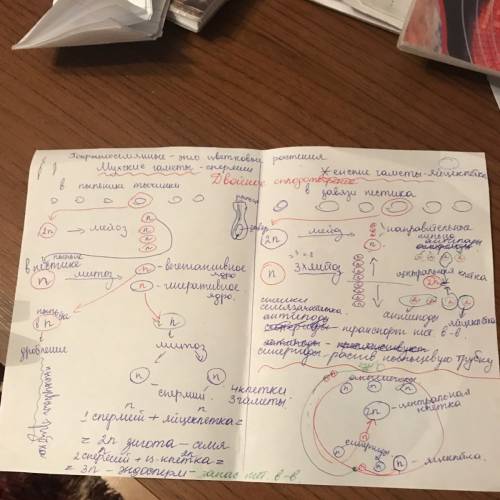 Покрытосеменные - это цветковые растения
Мужские гаметы - спермии
Двойное
в пыльнике тычинки
2n → мейоз
n
n
n
n
в пестике
митоз
n - вегетативное
ядро
n - генеративное
ядро.
n
митоз
n n
спермии
4 клетки
3 гаметы
n n
1 спермий + яйцеклетка =
= 2n зигота - семя
2n
2 спермий + ц. клетка =
= 3n - эндосперм - запас пит. в-в
Женские гаметы - яйцеклетка
в завязи пестика
2n мейоз
n
n
n
n
направительные
n 3x митоз
центральная клетка
2n
антиподы
яйцеклетка
антиподы
- транспорт пит. в-в.
синергиды - раств. пыльцевую трубку
антиподы
n n n
2n - центральная
клетка
синергиды
n n n - яйцеклетка.